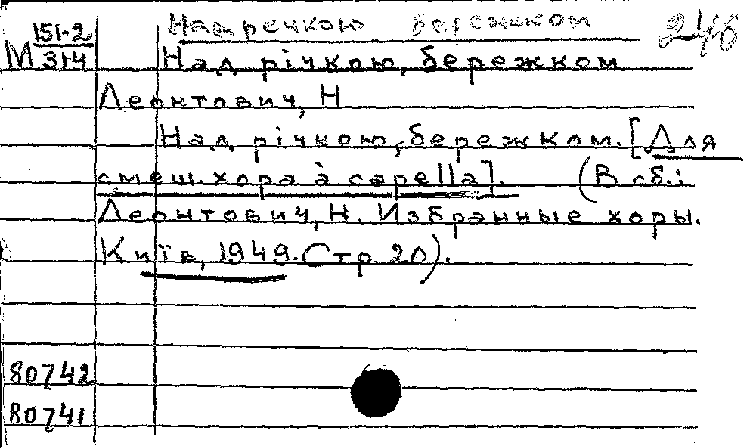 151-2 Над речкою бережком 246
М 314 Над річкою, бережком
Леонтович, Н
Над річкою, бережком. [Для
смеш. хора à capella]. (В сб.:
Леонтович, Н. Избранные хоры.
Київ, 1949. Стр 20).
80742
80741